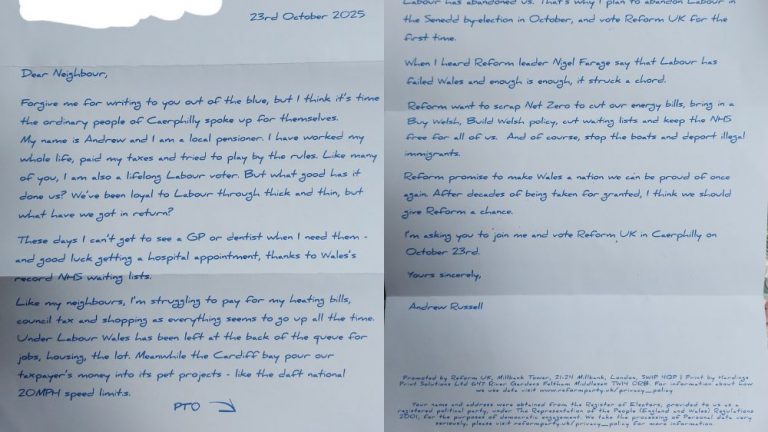 23rd October 2025
Dear Neighbour,
Forgive me for writing to you out of the blue, but I think it's time
the ordinary people of Caerphilly spoke up for themselves.
My name is Andrew and I am a local pensioner. I have worked my
whole life, paid my taxes and tried to play by the rules. Like many
of you, I am also a lifelong Labour voter. But what good has it
done us? We've been loyal to Labour through thick and thin, but
what have we got in return?
These days I can't get to see a GP or dentist when I need them -
and good luck getting a hospital appointment, thanks to Wales's
record NHS waiting lists.
Like my neighbours, I'm struggling to pay for my heating bills,
council tax and shopping as everything seems to go up all the time.
Under Labour Wales has been left at the back of the queue for
jobs, housing, the lot. Meanwhile the Cardiff bay pour our
taxpayer's money into its pet projects - like the daft national
20MPH speed limits.
PTO
Labour has abandoned us. That's why I plan to abandon Labour in
the Senedd by-election in October, and vote Reform UK for the
first time.
When I heard Reform leader Nigel Farage say that Labour has
failed Wales and enough is enough, it struck a chord.
Reform want to scrap Net Zero to cut our energy bills, bring in a
Buy Welsh, Build Welsh policy, cut waiting lists and keep the NHS
free for all of us. And of course, stop the boats and deport illegal
immigrants.
Reform promise to make Wales a nation we can be proud of once
again. After decades of being taken for granted, I think we should
give Reform a chance.
I'm asking you to join me and vote Reform UK in Caerphilly on
October 23rd.
Yours sincerely,
Andrew Russell
Promoted by Reform UK, Millbank Tower, 21-24 Millbank, London, SW1P 4QP | Print by Hardings
Print Solutions Ltd 647 River Gardens Feltham Middlesex TW14 0RB. For information about how
we use data visit www.reformparty.uk/privacy_policy
Your name and address were obtained from the Register of Electors, provided to us as a
registered political party, under The Representation of the People (England and Wales) Regulations
2001, for the purposes of democratic engagement. We take the processing of Personal data very
seriously, please visit reformparty.uk/privacy_policy for more information